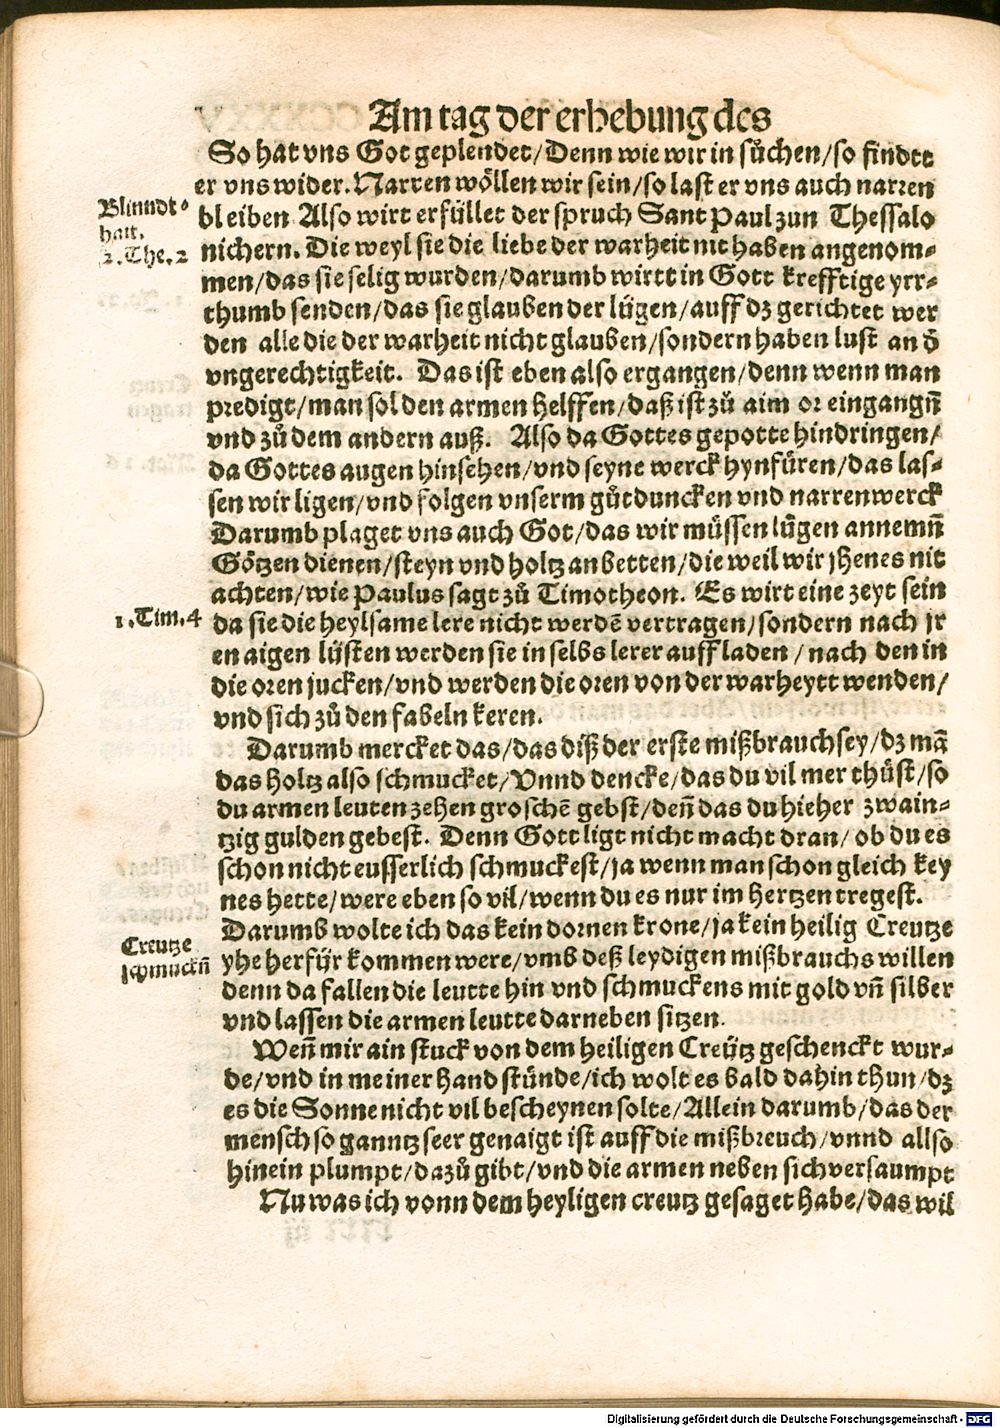 Am tag der erhebung des
So hat vns Got geplendet/Denn wie wir in suͦchen/so findet
er vns wider. Narren woͤllen wir sein/so last er vns auch narren
Blinndt⸗
hait.
2.The.2
bleiben Also wirt erfuͤllet der spruch Sant Paul zun Thessalo
nichern. Die weyl sie die liebe der warheit nit haben angenom⸗
men/das sie selig wurden/darumb wirtt in Gott krefftige yrr⸗
thumb senden/das sie glauben der luͤgen/auff dz gerichtet wer
den alle die der warheit nicht glauben/sondern haben lust an d̄
vngerechtigkeit. Das ist eben also ergangen/denn wenn man
predigt/man sol den armen helffen/daß ist zuͦ aim or eingangn̄
vnd zuͦ dem andern auß. Also da Gottes gepotte hindringen/
da Gottes augen hinsehen/vnd seyne werck hynfuͤren/das las⸗
sen wir ligen/vnd folgen vnserm guͦtduncken vnd narrenwerck
Darumb plaget vns auch Got/das wir muͤssen luͤgen annemn̄
Goͤtzen dienen/steyn vnd holtz anbetten/die weil wir jhenes nit
achten/wie Paulus sagt zuͦ Timotheon. Es wirt eine zeyt sein
1.Tim.4
da sie die heylsame lere nicht werdē vertragen/sondern nach jr
en aigen luͤsten werden sie in selbs lerer auff laden/nach den in
die oren jucken/vnd werden die oren von der warheytt wenden/
vnd sich zuͦ den fabeln keren.
Darumb mercket das/das diß der erste mißbrauch sey/dz mā
das holtz also schmucket/Vnnd dencke/das du vil mer thuͤst/so
du armen leuten zehen groschē gebst/den̄ das du hieher zwain⸗
tzig gulden gebest. Denn Gott ligt nicht macht dran/ob du es
schon nicht eusserlich schmuckest/ja wenn man schon gleich key
nes hette/were eben so vil/wenn du es nur im hertzen tregest.
Darumb wolte ich das kein dornen krone/ja kein heilig Creutze
Creutze
schmuckn̄
yhe herfuͤr kommen were/vmb deß leydigen mißbrauchs willen
denn da fallen die leutte hin vnd schmuckens mit gold vn̄ silber
vnd lassen die armen leutte darneben sitzen.
Wen̄ mir ain stuck von dem heiligen Creuͤtz geschenckt wur⸗
de/vnd in meiner hand stuͤnde/ich wolt es bald dahin thun/dz
es die Sonne nicht vil bescheynen solte/Allein darumb/das der
mensch so ganntz seer genaigt ist auff die mißbreuch/vnnd allso
hinein plumpt/dazuͦ gibt/vnd die armen neben sich versaumpt
Nu was ich vonn dem heyligen creutz gesaget habe/das wil
Digitalisierung gefördert durch die Deutsche Forschungsgemeinschaft - DFG